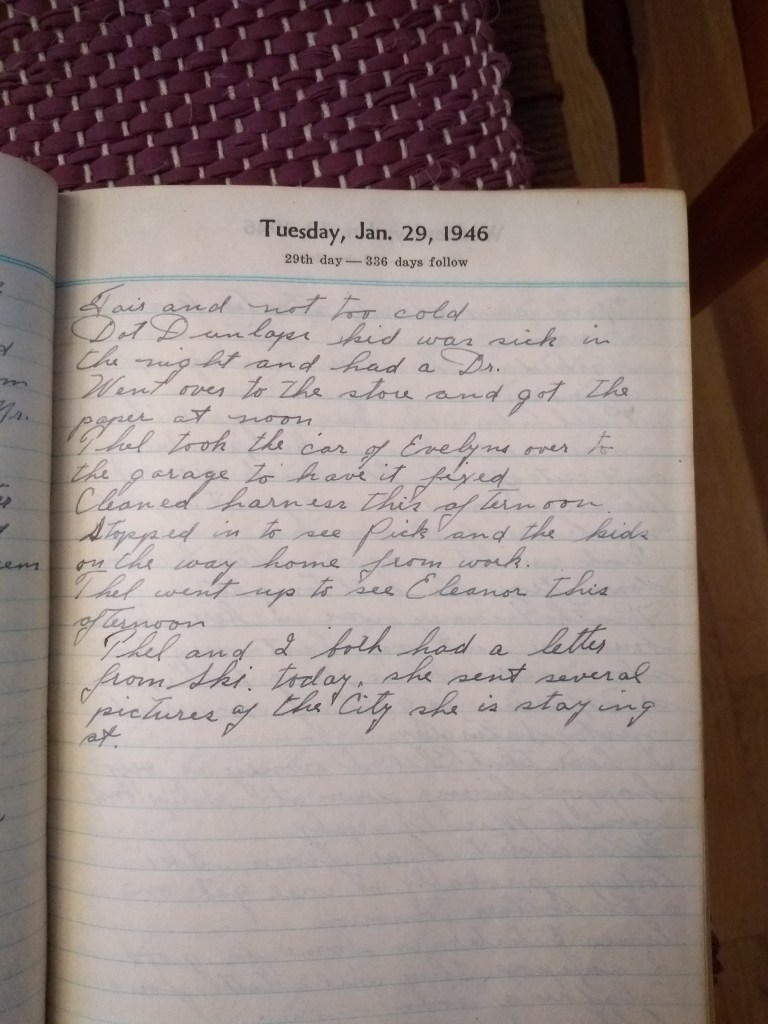 Tuesday, Jan. 29, 1946
29th day — 336 days follow
Fair and not too cold
Dot Dunlaps kid was sick in
the night and had a Dr.
Went over to the store and got the
paper at noon
Thel took the car of Evelyns over to
the garage to have it fixed
Cleaned harness this afternoon.
Stopped in to see Pick and the kids
on the way home from work.
Thel went up to see Eleanor this
afternoon
Thel and I both had a letter
from Ski. today. she sent several
pictures of the City she is staying
at.